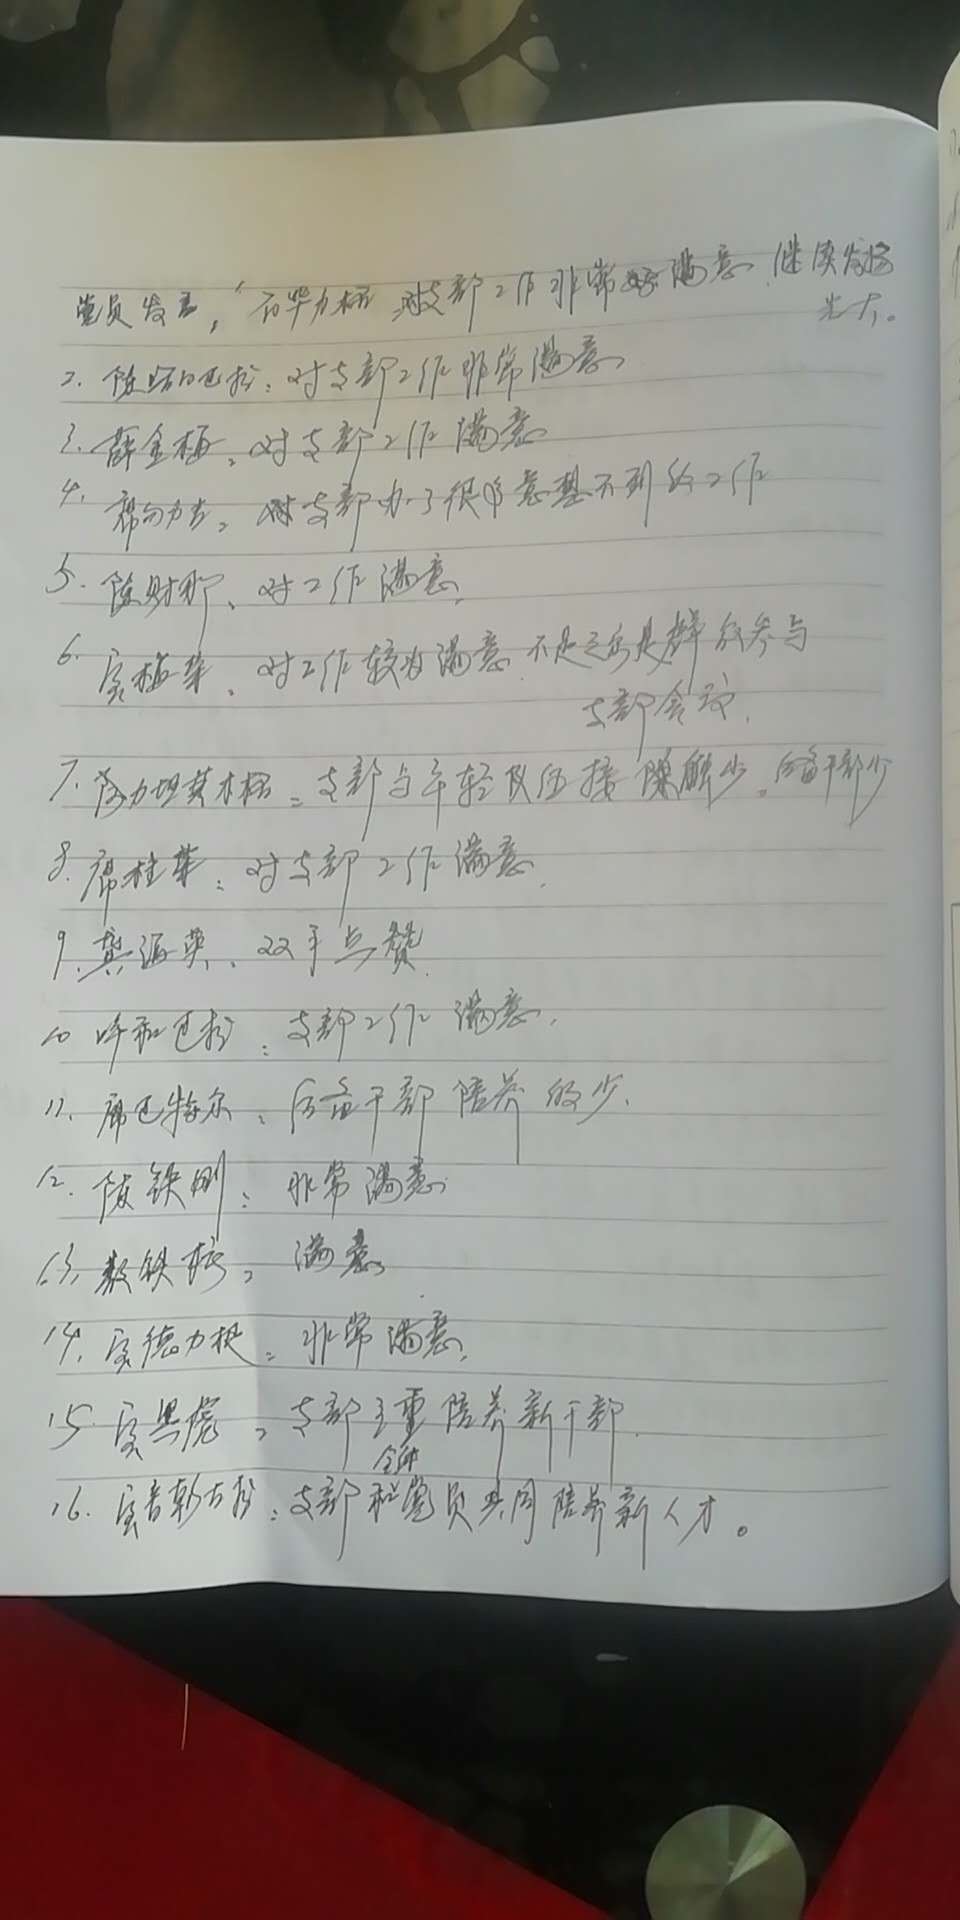 党员发言,1石华力格 对支部工作非常满意.继续发扬
光大。
2.陈 巴拉:对支部工作非常满意
3.薛金梅,对支部工作满意
4. 对支部办了很多意想不到的工作
5.陈财那、对工作满意.
6.宝梅荣、对工作较为满意.不是 是群众参与
支部会议.
7. 力坦其木格:支部与年轻队伍接 少.后备干部少
8.席桂荣:对支部工作满意.
9.龚海英、双手点赞.
10 呼和巴拉:支部工作满意.
11.席巴特尔:后备干部陪养的少.
12.陈铁刚:非常满意.
13.敖铁 ,满意
14.宝德力根:非常满意.
15.宝黑虎,支部主重陪养新干部.
全体
16.宝音 古拉:支部和党员共同陪养新人才。